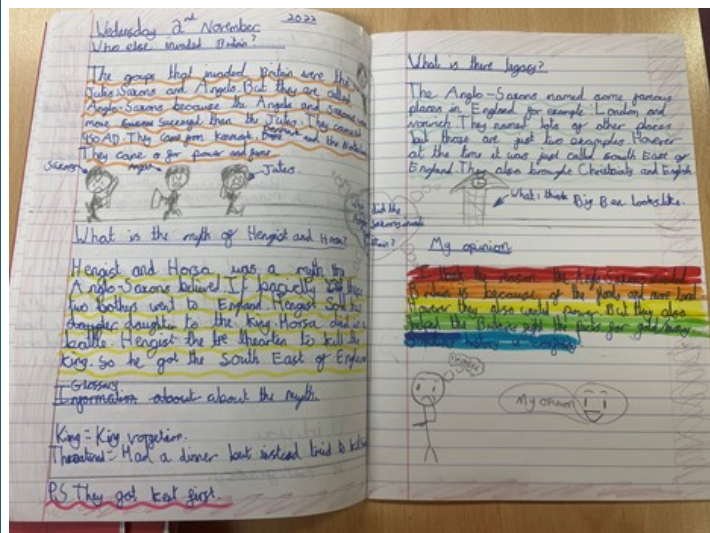 Wednesday 2nd November 2022
Who else invaded Britain?
The groups that invaded Britain were the
Jutes, Saxons and Angels. But they are called
Anglo-Saxons because the Angels and saxons
more than the Jutes. They came
450 AD. They came from and the
They came for power and
Saxons
Angels
Jutes
did the
What is the myth of Hengist and Horsa?
Hengist and Horsa was a myth the
Anglo-Saxons believed. It
two bothers went to England. Hengist
daughter to the king. Horsa died in a
battle. Hengist the to kill the
king. So he got the South East of England
Glossary
Information about about the myth.
King = King
= Had a dinner but instead tried to kill
PS They got kent first.
What is there legacy?
The Anglo-Saxons named some famous
places in England for example London and
norwich. They named lots of other places
but those are just two examples. However
at the time it was just called south East of
England. They also brought and English
What i think Big Ben looks like.
My opinion
I think the reason the Anglo-Saxons invaded
Britain is because of the and more land.
However they also power. But they also
helped the the picts for gold/money
My opinion